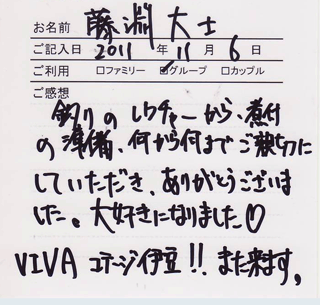 お名前 藤淵大士
ご記入日 2011年11月6日
ご利用 □ファミリー ☑グループ □カップル
ご感想
釣りのレクチャーから、煮付
の準備、何から何までご親切に
していただき、ありがとうございま
した。大好きになりました♡
VIVA コテージ伊豆!! また来ます。